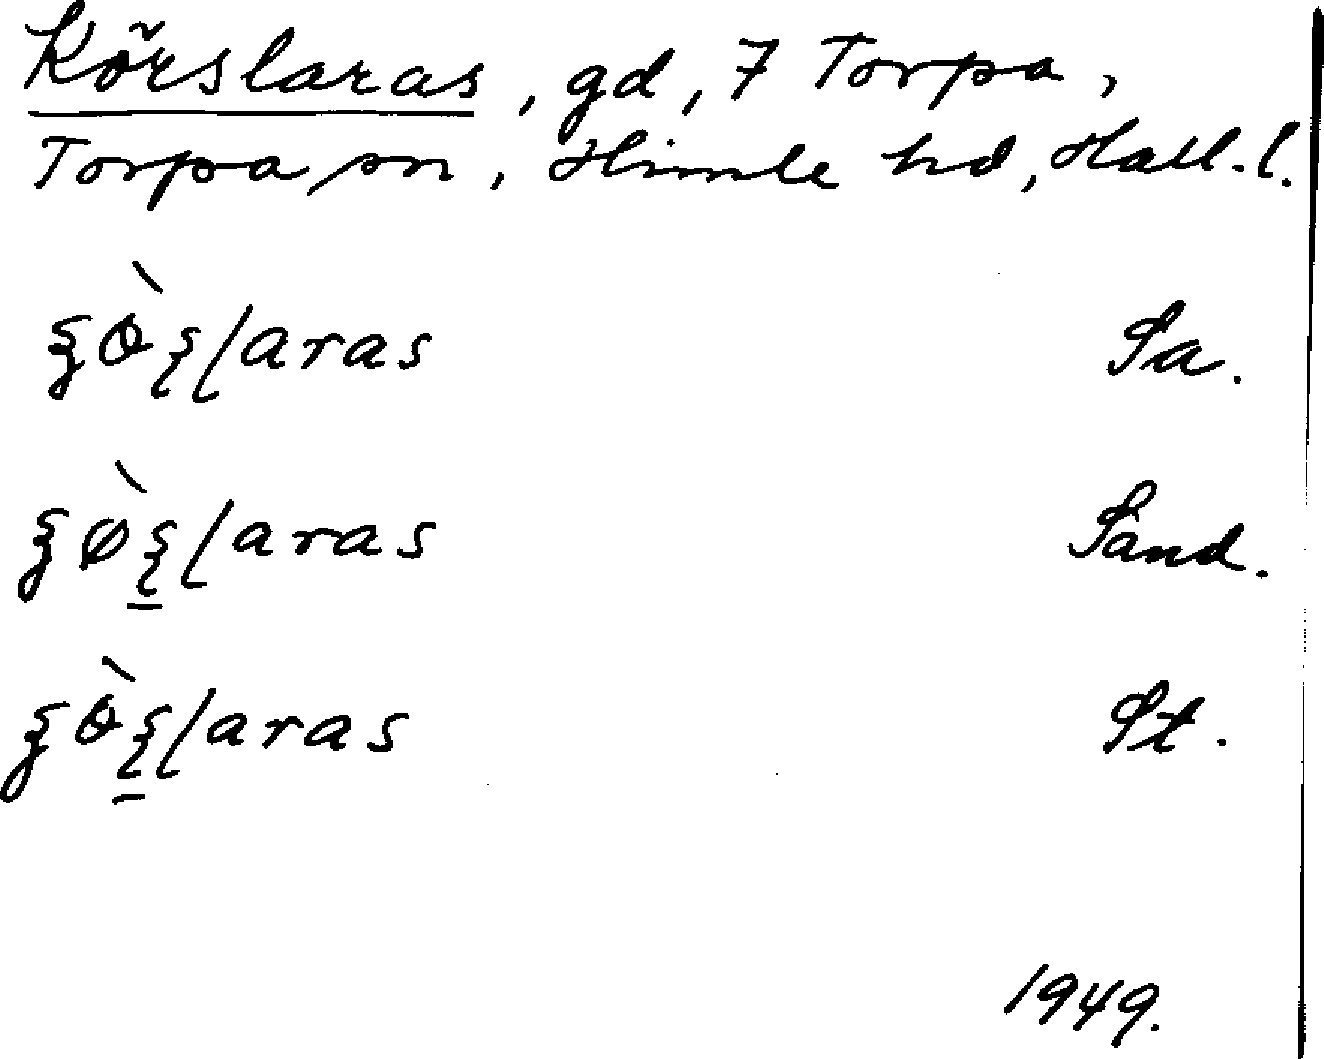 Körslaras, gd, 7 Torpa,
Torpa sn, Himle hd, Hall. l.
aras Sa.
aras Sand.
aras St.
1949.